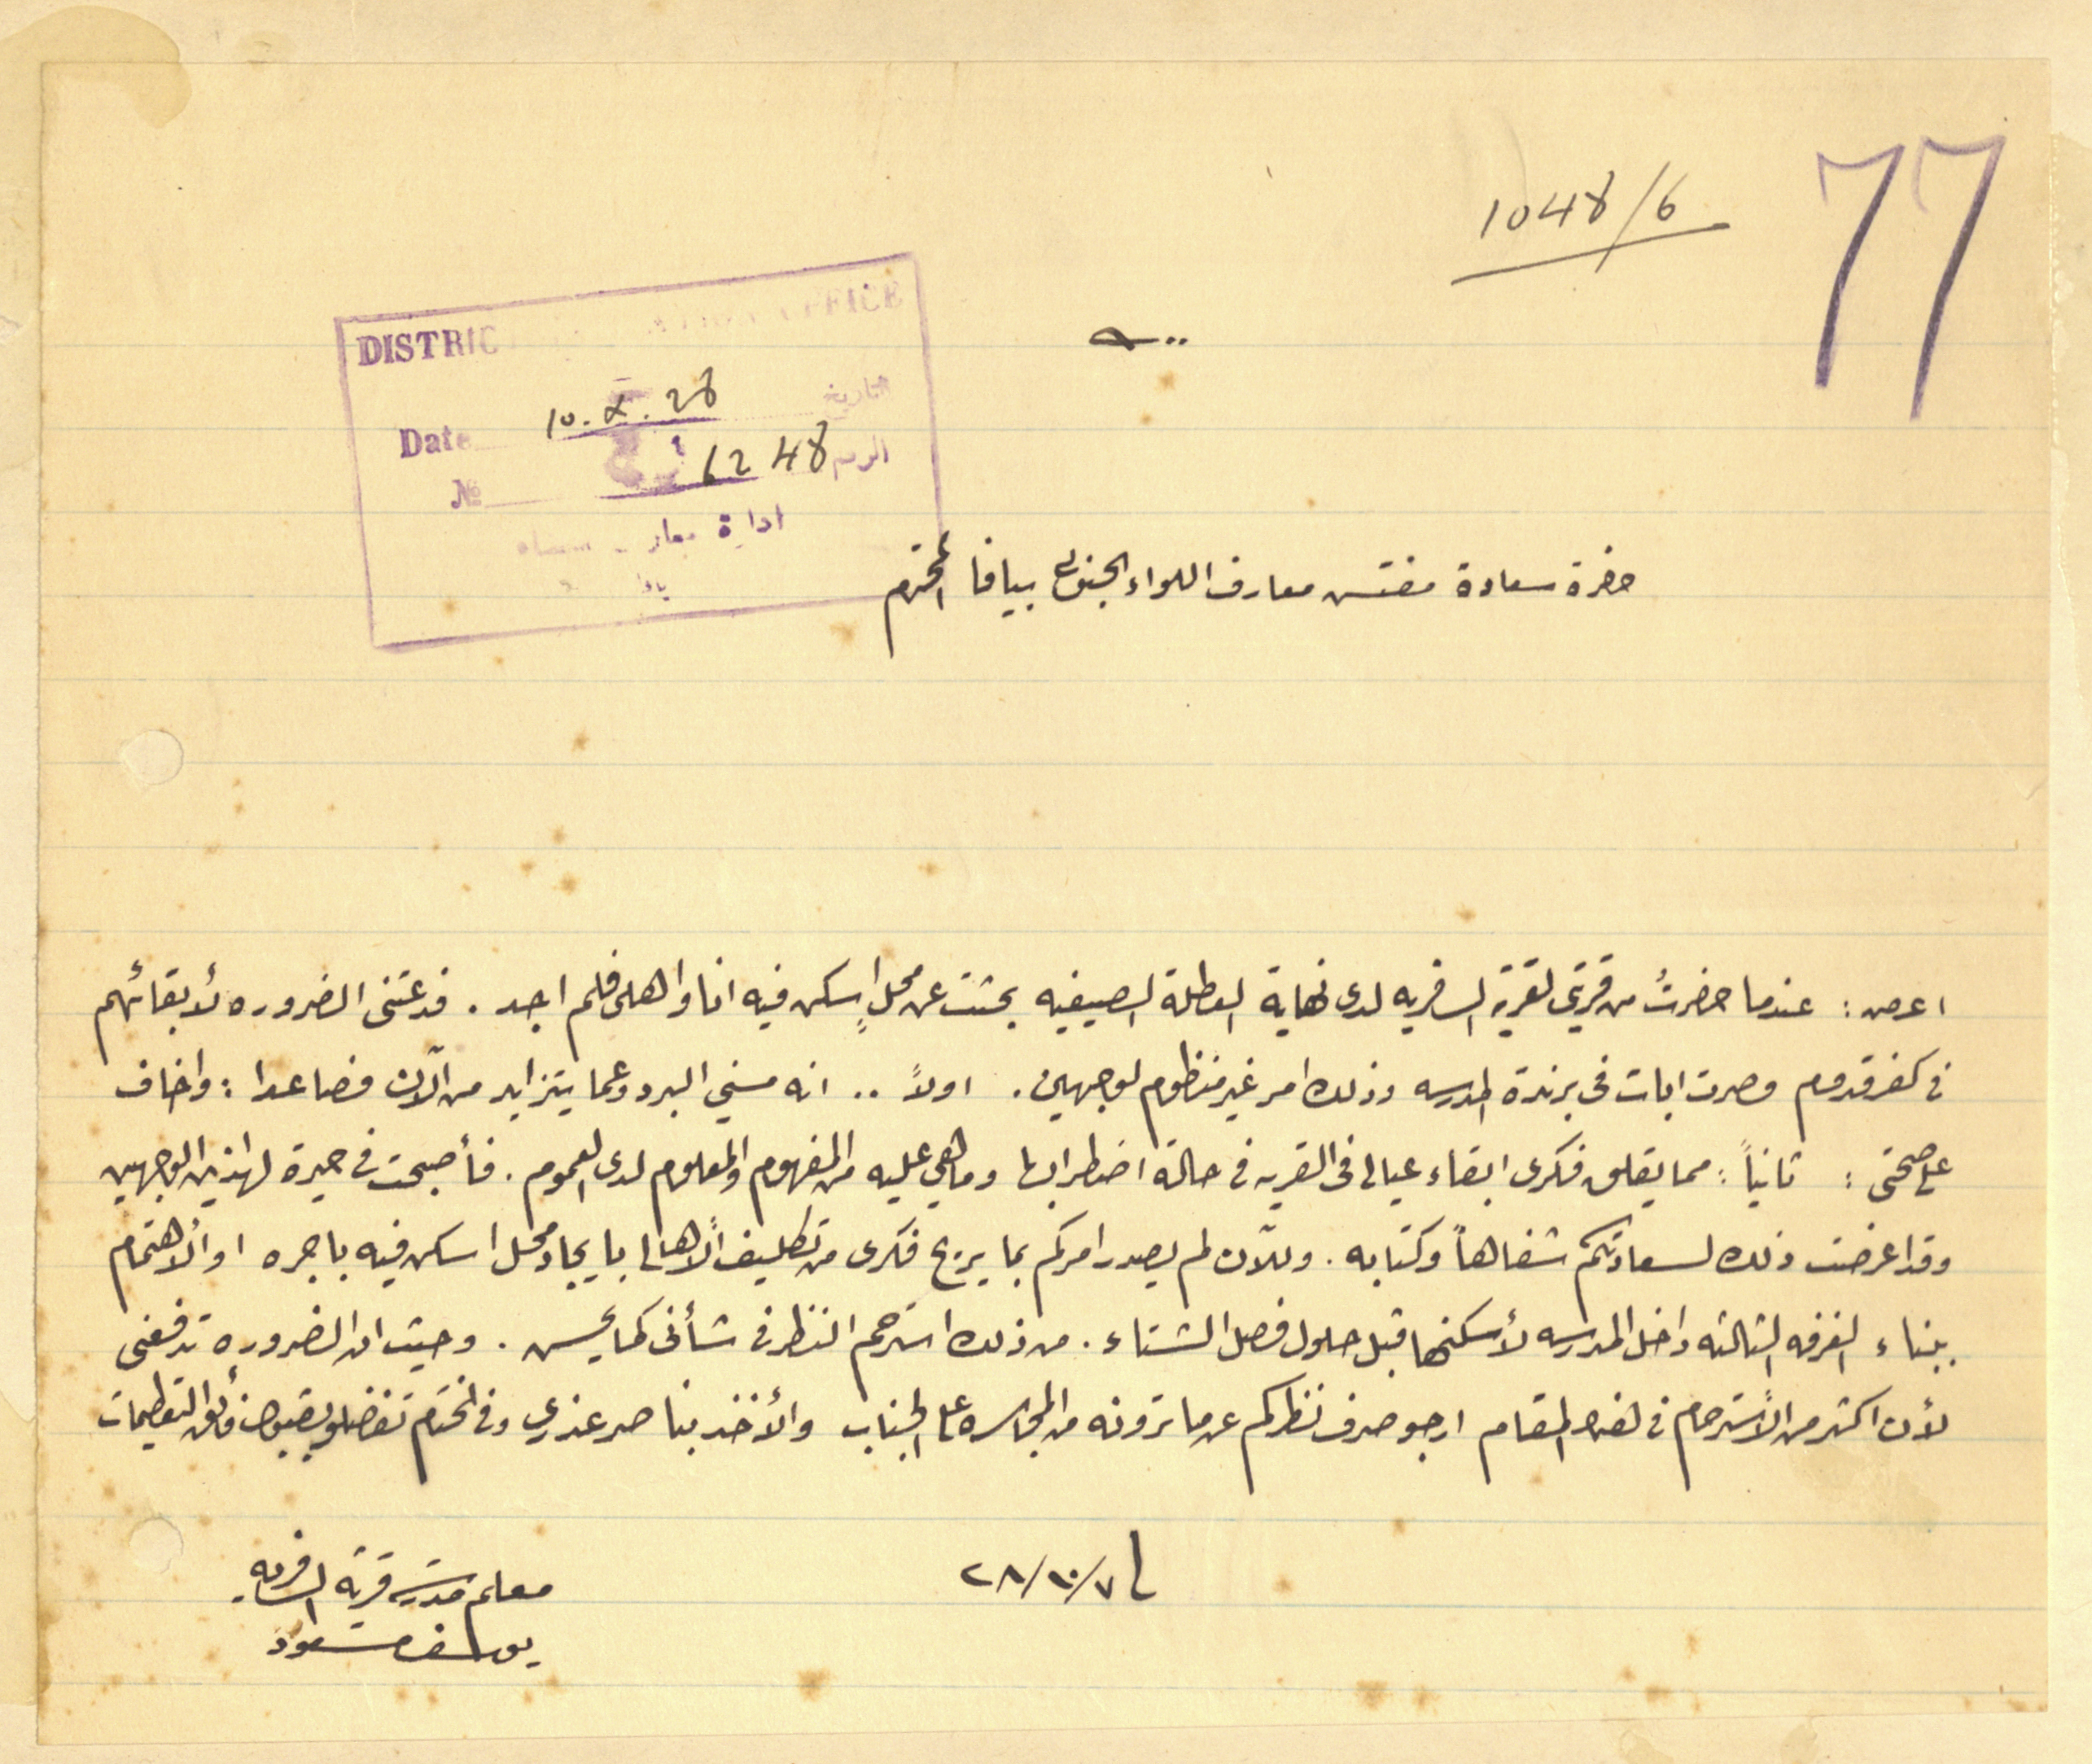 77
1048/6
DISTRIC OFFICE
Date 10.X.28 التاريخ
№ 6248 الرقم
ادارة معارف
حضرة سعادة مفتش معارف اللواء الجنوبي بيافا المحترم
اعرض : عندما حضرتُ من قريتي لقرية السافريه لدى نهاية العطلة الصيفيه بحثت عن محلٍ اسكن فيه انا واهلي فلم اجد . فدعتنى الضروره لأبقائهم
في كفر قدوم وصرت ابات فى برندة المدرسه وذلك امر غير منظوم لوجهين . اولاً .. انه مسني البرد وعما يتزايد من الآن فصاعدا : واخاف
على صحتى : ثانياً : مما يقلق فكرى ابقاء عيالى فى القريه فى حالة اضطرابها وما هي عليه من المفهوم والمعلوم لدى العموم . فأصبحت فى حيرة لهاذين الوجهين
وقد اعرضت ذلك لسعادتكم شفاهاً وكتابه . وللآن لم يصدر امركم بما يريح فكرى من تكليف الأهالى بايجاد محل اسكن فيه باجره او الأهتمام
ببناء الغرفه الثالثه داخل المدرسه لأسكنها قبل حلول فصل الشتاء . من ذلك استرحم النظر فى شأنى كما يحسن . وحيث ان الضروره تدفعنى
لأن اكثر من الأسترحام فى هذا المقام ارجو صرف نظركم عن ما ترونه من المجاسره على الجناب والأخذ بناصر عذري وفى الختام تفضلو بقبول فائق التعظيمات
٢٨/١٠/٧
معلم مدرسة قرية السافريه
يوسف مسعود